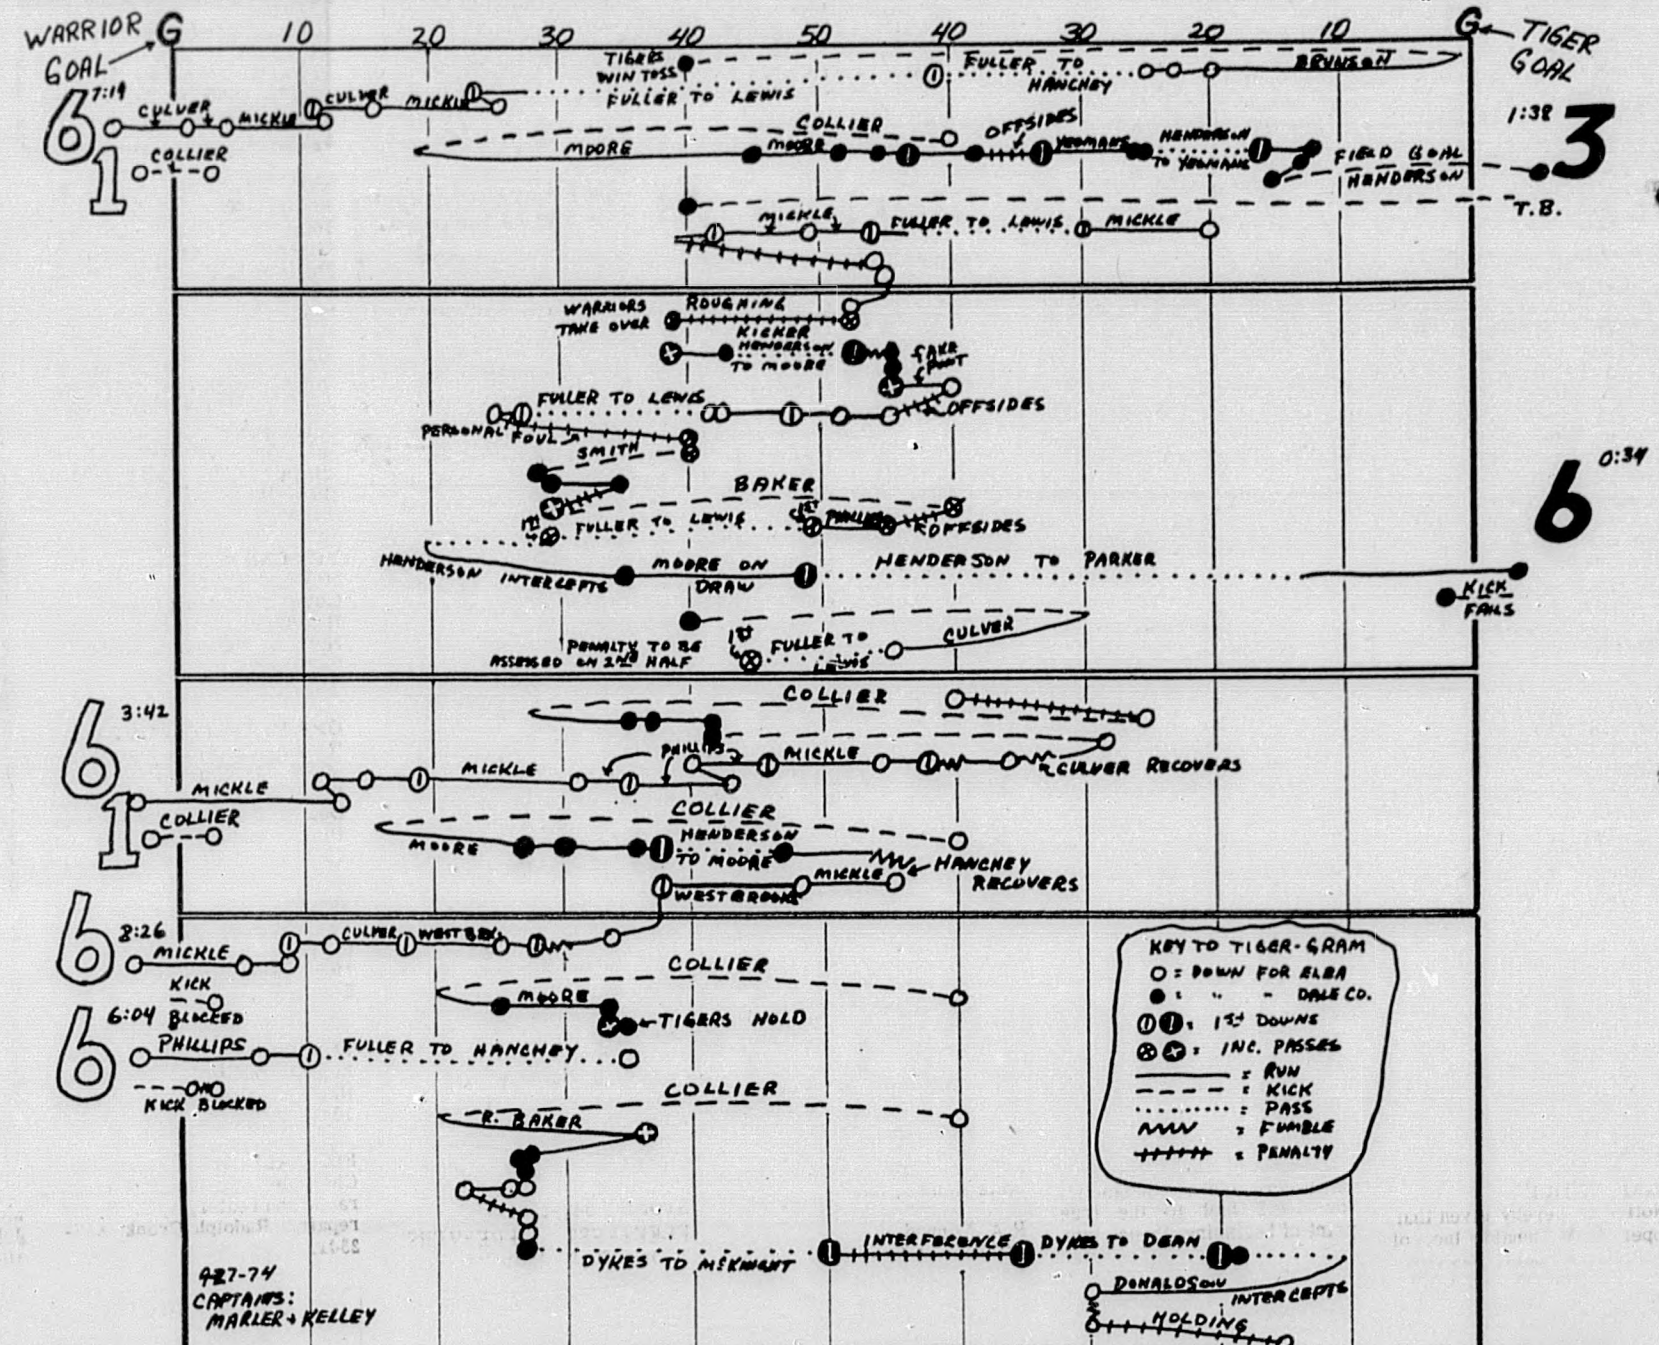 WARRIOR GOAL
G 10 20 30 40 50 40 30 20 10 G
TIGER GOAL
TIGERS WIN TOSS
FULLER TO HANCHEY
BRUNSON
6 7:19
CULVER
MICKLE
CULVER
MICKLE
FULLER TO LEWIS
1
COLLIER
COLLIER
MOORE
MOORE
OFFSIDES
YEOMANS
HENDERSON TO YEOMANS
FIELD GOAL HENDERSON
1:38 3
T.B.
MICKLE
FULLER TO LEWIS
MICKLE
WARRIORS TAKE OVER
ROUGHING KICKER
HENDERSON TO MOORE
FAKE PUNT
FULLER TO LEWIS
OFFSIDES
PERSONAL FOUL
SMITH
BAKER
1ST
FULLER TO LEWIS
1ST
PHILLIPS
OFFSIDES
6 0:34
HENDERSON INTERCEPTS
MOORE ON DRAW
HENDERSON TO PARKER
KICK FAILS
PENALTY TO BE
ASSESSED ON 2ND HALF
1ST
FULLER TO LEWIS
CULVER
6 3:42
COLLIER
PHILLIPS
MICKLE
CULVER RECOVERS
MICKLE
MICKLE
1
COLLIER
COLLIER
MOORE
HENDERSON TO MOORE
HANCHEY RECOVERS
MICKLE
WESTBROOK
6 8:26
MICKLE
CULVER
KICK BLOCKED
COLLIER
MOORE
TIGERS HOLD
6 6:04
PHILLIPS
FULLER TO HANCHEY
KICK BLOCKED
COLLIER
R. BAKER
DYKES TO McKNIGHT
INTERFERENCE
DYKES TO DEAN
DONALDSON INTERCEPTS
HOLDING
KEY TO TIGER-GRAM
= DOWN FOR ELBA
= " " DALE CO.
= 1ST DOWNS
= INC. PASSES
= RUN
= KICK
= PASS
= FUMBLE
= PENALTY
927-74
CAPTAINS:
MARLER + KELLEY